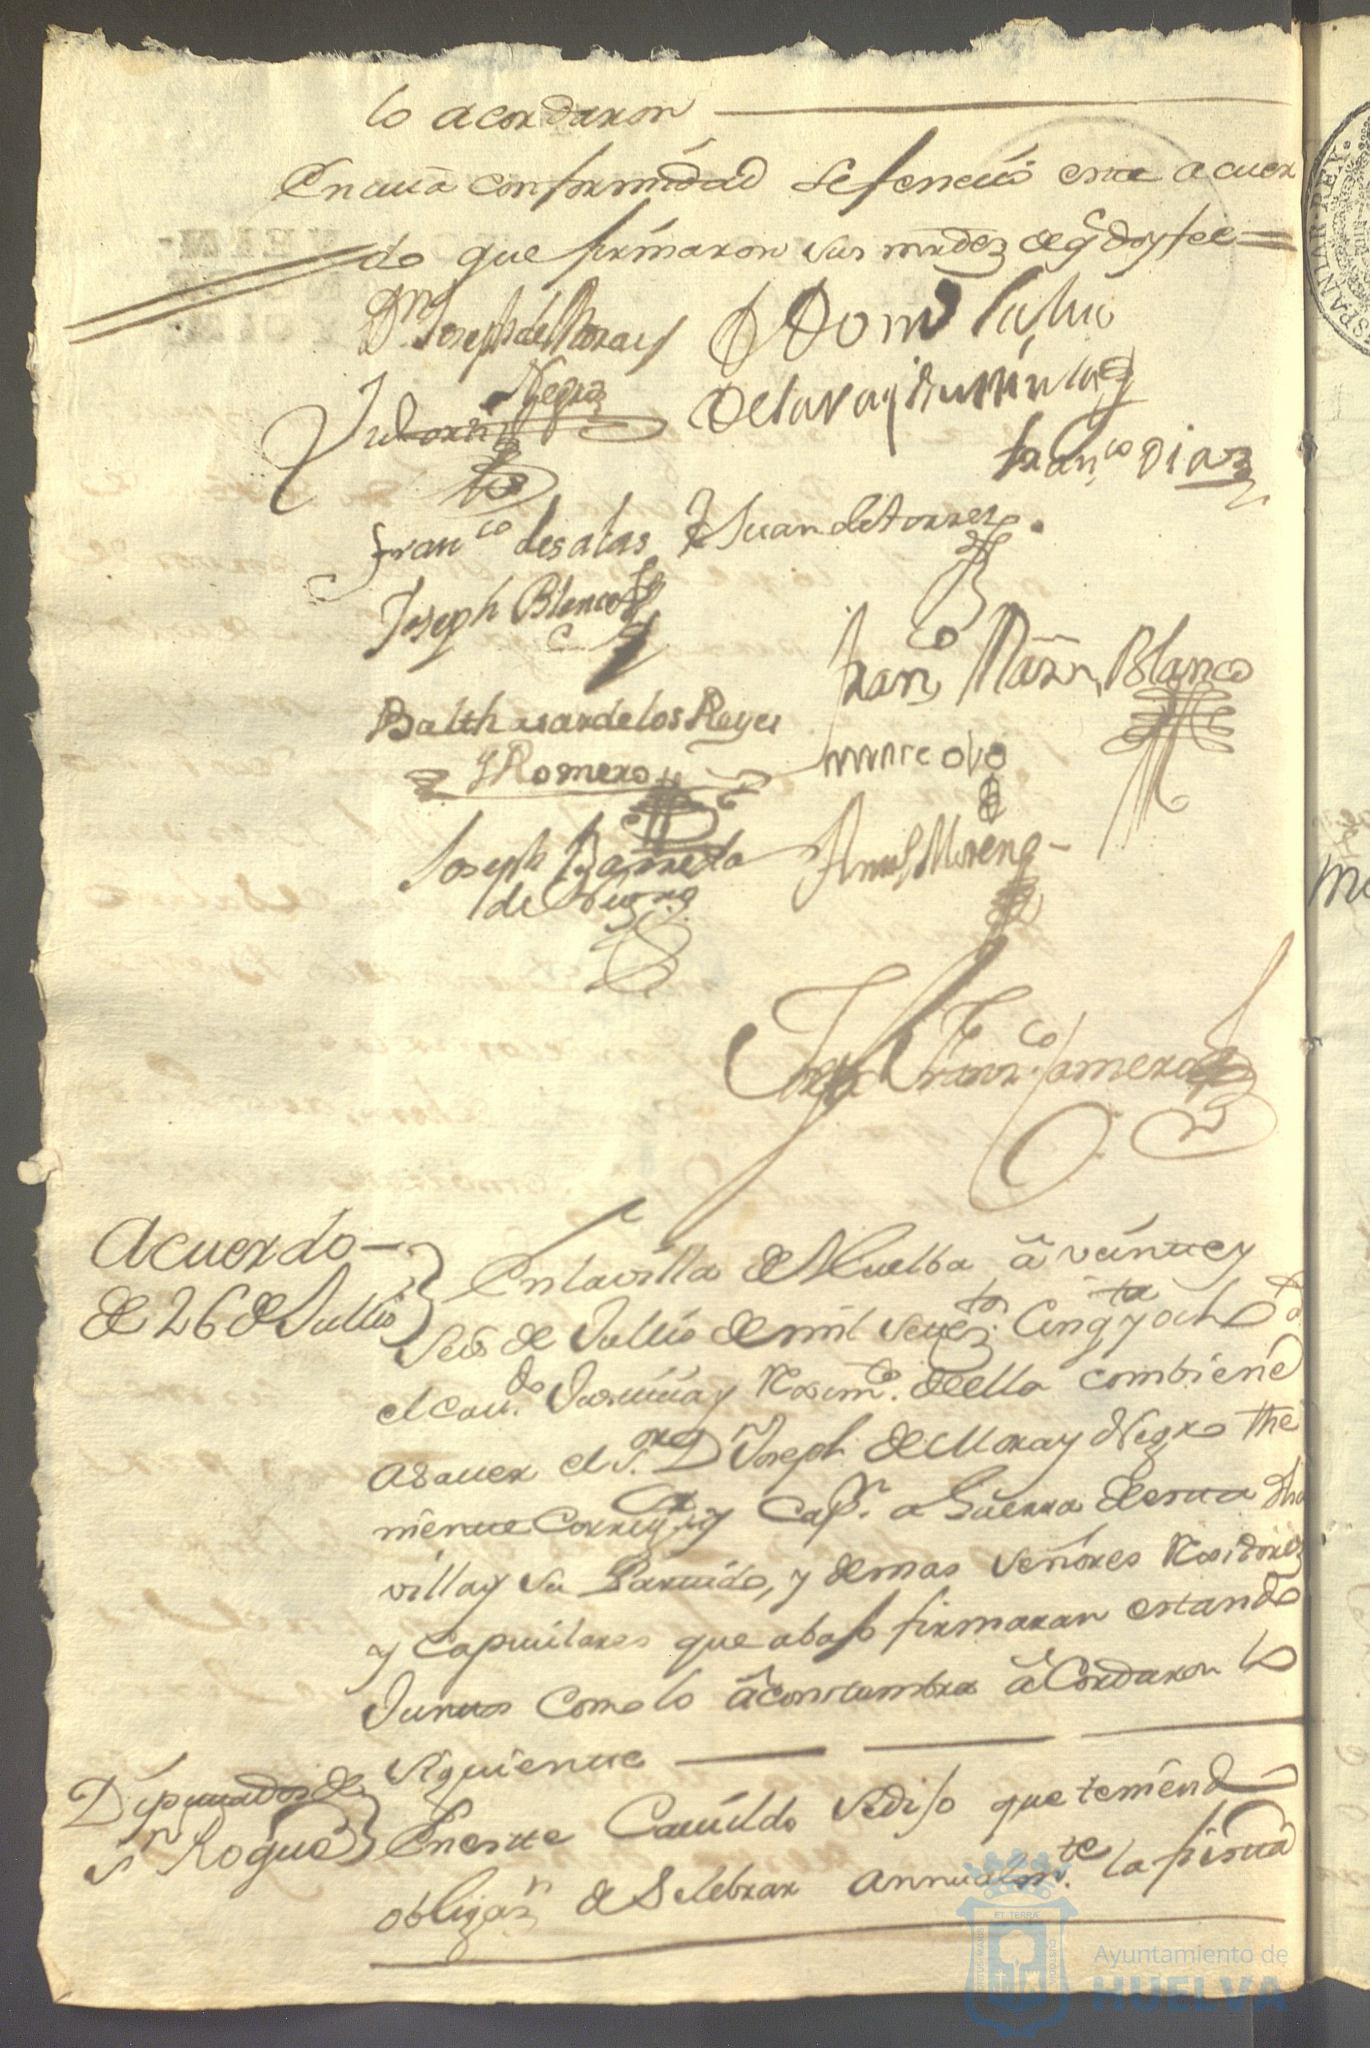 lo acordaron
En cuia conformidad se fenecio este acuer
do que firmaron sus mrdes de q doy fee
Dn Joseph de Mora y
Negro
Franco Diaz
Franco de salas
Juan de torres
Joseph Blanco
Franco Blanco
Balthasar de los Reyes
y Romero
Joseph
Moreno
Franco
Acuerdo
de 26 de Jullio
En la villa de Huelba â veinte y
seis de Jullio de mil setez.tos Cinq.ta y ocho
el cau.do Justicia y Reximto. de ella combiene
a sauer el S.or Dn Joseph de Mora y Negro the
niente Corregor y Capn. a Guerra de esta dha
villa y su Partido, y demas señores Residores
y Capitulares que abajo firmaran estando
Juntos como lo â constumbra â Cordaron lo
siguiente
Diputados de
Sn Roque
En este Cauildo se dijo que teniendo
obligazn de Selebrar annualmte. la fiesta
Ayuntamiento de
HUELVA